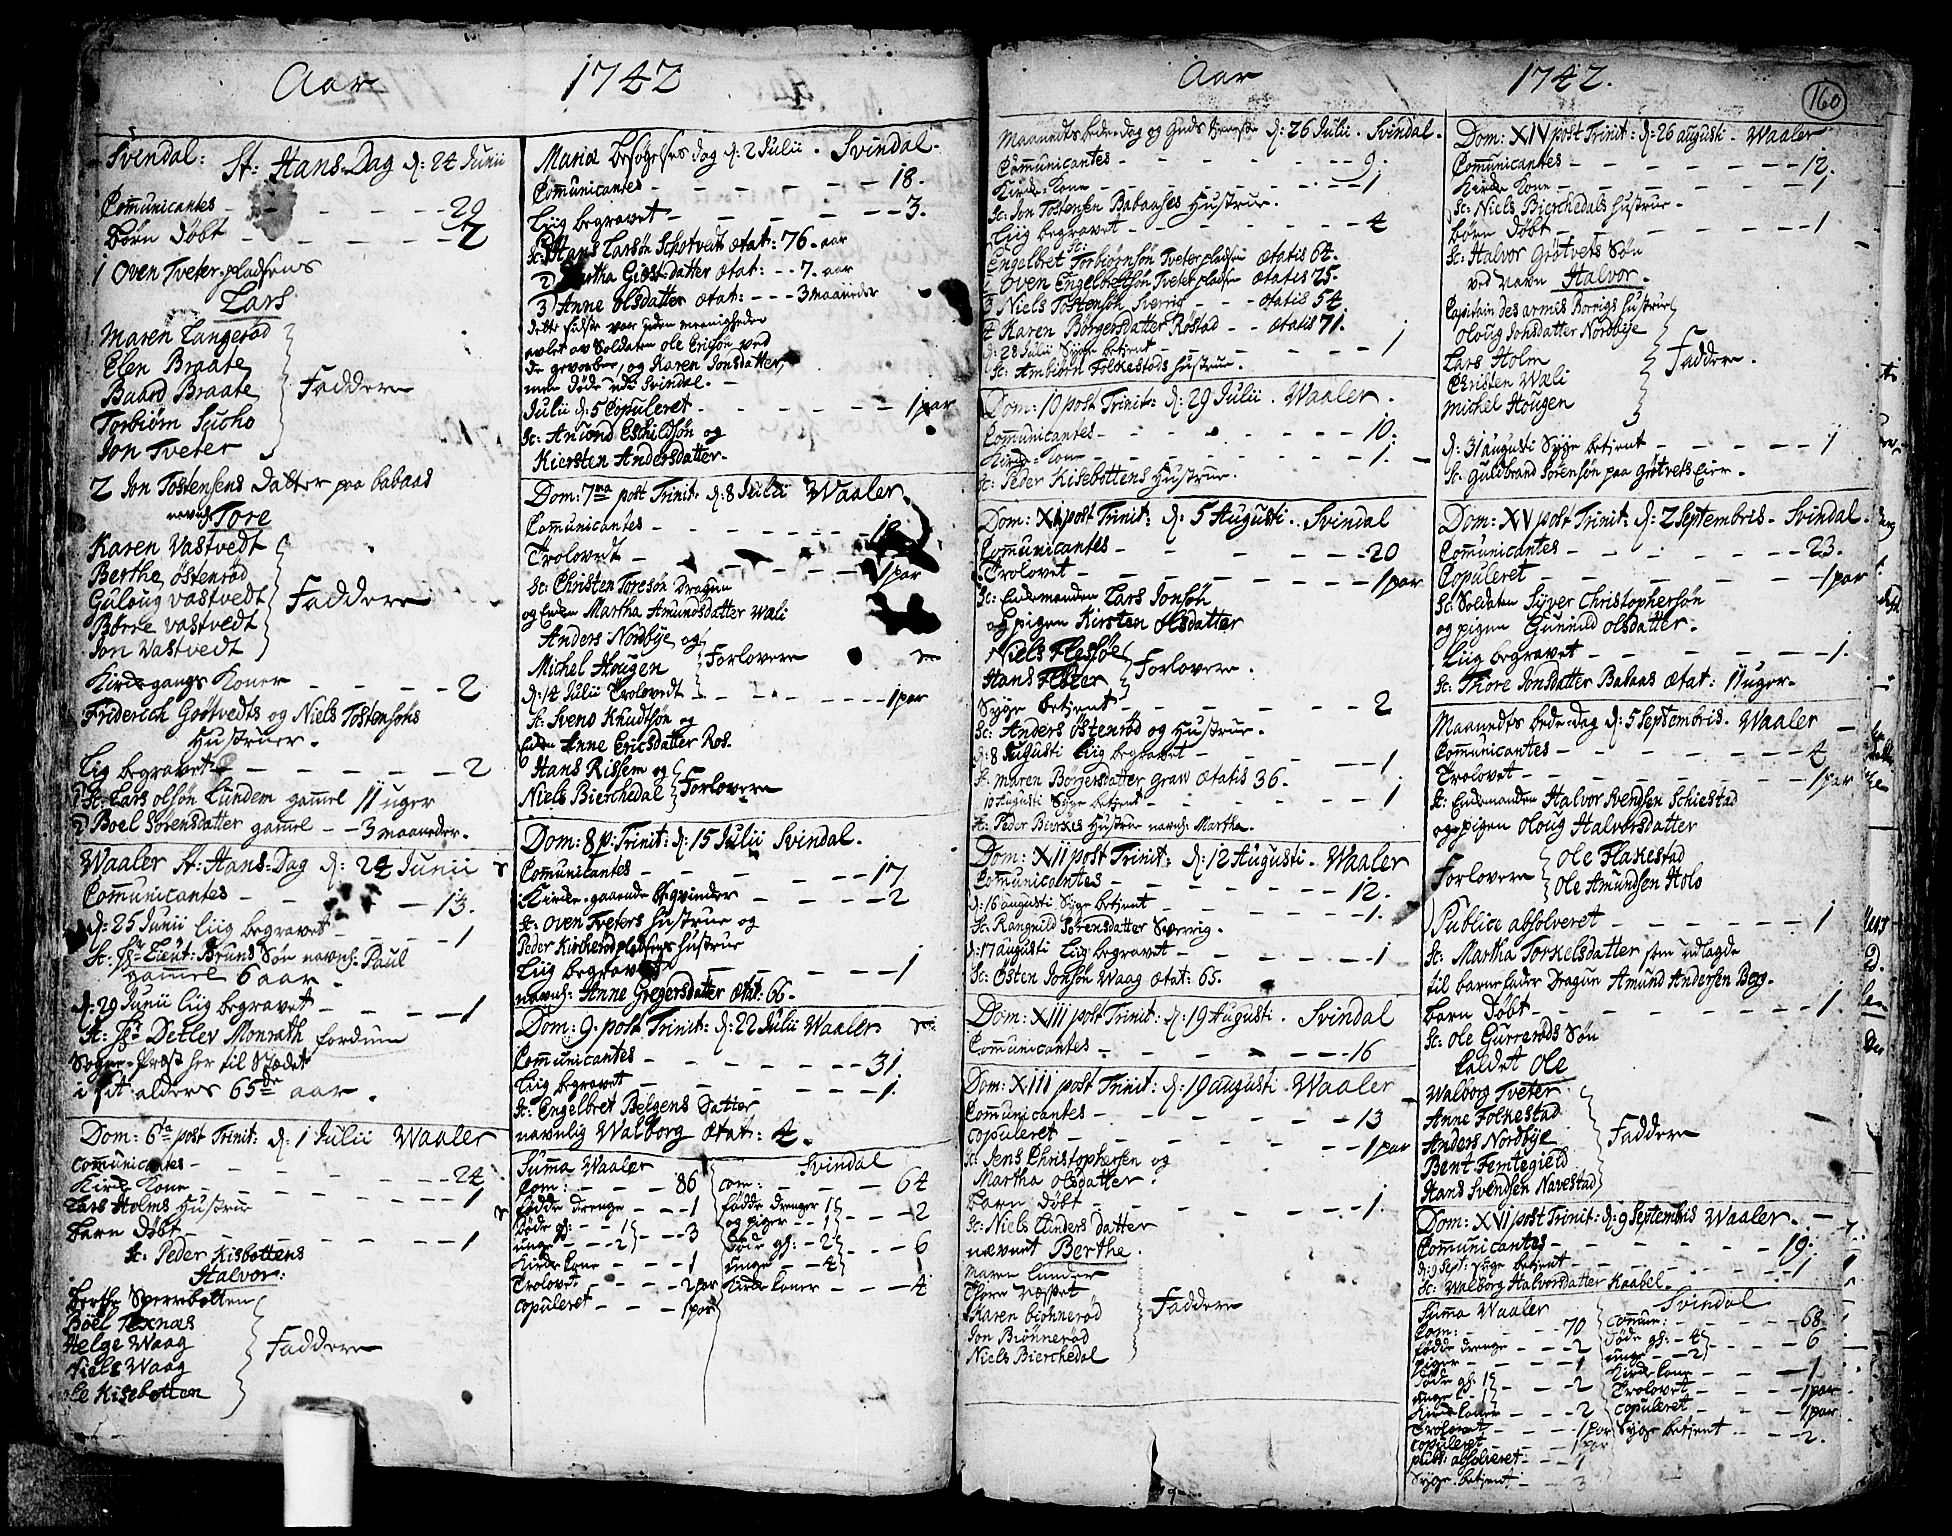 Aar 1742
Svendal: St: Hans-Dag d: 24 Junii
Communicantes - - - - - 29
Børn Døbt - - - - - 2
1 Oven Tveter-pladsens
Lars
Maren Langerød
Elen Braate
Baard Braate
Torbiørn Sucho
Jon Tveter
Faddere
2 Jon Tostensens Datter paa babaas
navnl: Tore
Karen Vastvedt
Berthe Østenrød
Guloug Vastvedt
Børre Vastvedt
Jon Vastvedt
Faddere
Kirkegangs Koner - - - - 2
Friderich Grøtvedts og Niels Tostensøns
Hustruer.
Liig begravet - - - - - 2
1 Sc: Lars Olsøn Lundem gammel 11 uger
2 Boel Sørensdatter gammel - - 3 maaneder.
Waaler St: Hans-Dag d: 24 Junii
Communicantes - - - - 13.
d: 25 Junii Liig begravet - - - - 1
Sc: Hr Lieut: Bruns Søn navnl: Paul
gammel 6 aar.
d: 29 Junii Liig begravet - - - - 1
Sc: Hr Detlev Monrath fordum
Sogne-Præst her til Stædet
i sit alders 65de aar.
Dom: 6ta post Trinit: d: 1 Julii Waaler
Communicantes - - - - - 24
Kirke Kone - - - - - 1
Lars Holms Hustrue
Barn Døbt - - - - - 1
Sc: Peder Kisbottens
Halvor:
Berthe Sperrebotten
Boel Texnæs
Helge Waag
Niels Waag
Ole Kisebotten
Faddere
Mariæ besøgelses dag d: 2 Julii. Svindal.
Communicantes - - - - - 18.
Liig begravet - - - - - 3.
Sc: Hans Larsøn Schotvedt ætat: 76. aar
2) Martha Giøst-datter ætat: - - 7. aar
3) Anne Olsdatter ætat: - - - 3 maaneder
avlet av Soldaten Ole Ericsøn ved
de gevorbne, og Karen Jonsdatter,
men døde udi Svindal. -
Julii d: 5 Copuleret - - - - - 1 par
Sc: Amund Eschildsøn og
Kiersten Andersdatter.
Dom: 7ma post Trinit: d: 8 Julii Waaler.
Communicantes - - - - - 18
Trolovedt - - - - - 1 par
Sc: Christen Toresøn Dragun
og Enken Martha Amundsdatter Wali
Anders Nordbye og
Michel Hougen
Forlovere
d: 14 Julii Trolovedt - - - - 1 par
Sc: Svend Knudtsøn og
Enken Anne Ericsdatter Ros.
Hans Rissem og
Niels Bierchedal
Forlovere
Dom: 8 p: Trinit: d: 15 Julii Svindal.
Communicantes - - - - - 17
Kirke-gaaende qvinder - - - - 2
Sc: Oven Tveters Hustrue og
Peder Kircherød pladsens Hustrue
Liig begravet - - - - - 1
navnl: Anne Gregersdatter ætat: 66.
Dom: 9. post Trinit: d: 22 Julii Waaler
Communicantes - - - - - 31.
Liig begravet - - - - - 1.
Sc: Engelbret Belgens Datter
navnlig Walborg ætat: 4.
Summa Waaler
Com: - - - - 86
fødde drenge - - - 1
Døde gl: - - 1
unge - - 2
- - 3
Kirke Kone - - - 1
Trolovet - - - 2 par
Copuleret - - - 1 par
Svindal
Com: - - - - 64
fødde drenger 1
og piger - - 1
- - 2
Døde gl: - 2
unge - - 4
- - 6
Kirke Koner - - - 4
Aar 1742.
160
Maanedts bede-dag og Guds tieneste d: 26 Julii. Svindal.
Communicantes - - - - - 9.
Kirke-Kone - - - - - 1
Sc: Jon Tostensen Babaases Hustrue.
Liig begravet - - - - - 4
Sc:
Engelbret Torbiørnsøn Tveter pladsen ætatis 64.
Oven Engelbretsøn Tveter pladsen ætatis 25.
Niels Tostensøn Sverrig - - - ætatis 54.
Karen Børgersdatter Røstad - - ætatis 71.
d: 28 Julii Syge betient - - - - 1
Sc: Ambiørn Folkestads Hustrue.
Dom: 10 post Trinit: d: 29 Julii. Waaler.
Communicantes - - - - - 10.
Kirke-Kone - - - - - 1.
Sc: Peder Kisebottens Hustrue.
Dom: XI post Trinit: d: 5 Augusti. Svindal
Communicantes - - - - - 20
Trolovet - - - - - 1 par
Sc: Enkemanden Lars Jonsøn
og pigen Kirsten Olsdatter
Niels Flesiøe
Hans Floter
Forlovere.
Syge betient - - - - - 2
Sc: Anders Østenrød og Hustrue.
d: 8 Augusti Liig begravet - - - - 1
Sc: Maren Børgersdatter Graw ætatis 36.
10 Augusti Syge betient - - - - 1
Sc: Peder Bierkes Hustrue navnl: Martha.
Dom: XII post Trinit: d: 12 Augusti. Waaler
Communicantes - - - - - 12.
d: 16 augusti Syge betient - - - - 1.
Sc: Rangnild Sørensdatter Sverrig.
d: 17 augusti Liig begravet - - - - 1
Sc: Østen Jonsøn Waag ætat: 65.
Dom: XIII post Trinit: d: 19 Augusti. Svindal
Communicantes - - - - - 16
Dom: XIII post Trinit: d: 19 augusti. Waaler
Communicantes - - - - - 13
Copuleret - - - - - 1 par
Sc: Jens Christophersen og
Martha Olsdatter.
Barn Døbt - - - - - 1.
Sc: Niels Lunders datter
nævnet Berthe.
Maren Lunder
Thore Næsset
Karen biønnerød
Jon Biønnerød
Niels Bierchedal
Faddere
Dom: XIV post Trinit: d: 26 augusti. Waaler
Communicantes - - - - - 12.
Kirke Kone - - - - - 1
Sc: Niels Bierchedals Hustrue.
Børn Døbt - - - - - 1
Sc: Halvor Grøtvets Søn
ved Navn Halvor.
Capitain des armis Bornigs Hustrue
Oloug Jonsdatter Nordbye
Lars Holm
Christen Wali
Michel Hougen
Faddere.
d: 31 augusti Syge betient - - - - 1
Sc: Guldbrand Sørensøn paa Grøtvets Eier.
Dom: XV post Trinit: d: 2 Septembris. Svindal.
Communicantes - - - - - 23.
Copuleret - - - - - 1 par
Sc: Soldaten Syver Christophersøn
og pigen Gunnild Olsdatter.
Liig begravet - - - - - 1.
Sc: Thore Jonsdatter Babaas ætat: 11 uger.
Maanedts bede-dag d: 5 Septembris. Waaler
Communicantes - - - - - 4
Trolovet - - - - - 1 par
Sc: Enkemanden Halvor Svendsen Schiestad
og pigen Oloug Halvorsdatter
Forlovere
Ole Flakestad
Ole Amundsen Holo
Publice absolveret - - - - - 1
Sc: Martha Torkelsdatter som udlagde
til barnefader Dragun Amund Andersen Berg.
Barn Døbt - - - - - 1.
Sc: Ole Gurrerøds Søn
kaldet Ole
Walborg Tveter
Anne Folkestad
Anders Nordbye
Bent Femtegield
Hans Svendsen Navestad
Faddere
Dom: XVI post Trinit: d: 9 Septembris Waaler.
Communicantes - - - - - 19.
d: 9 Sept: syge betient - - - - 1
Sc: Walborg Halvorsdatter Kaabel.
Summa Waaler
Com: - - - - 70
fødde drenge - - 2
piger - - - 1
Døde gl: 1
unge - - 1
- - 2
Kirke Koner - - - 2
Trolovet - - - 1 par
Copuleret - - - 1 par
publ: absolveret - - 1
Syge-betient - - 3
Svindal
Commun: - - - 68
Døde gl: - 4
unge - - 2
- - 6
Kirke Kone - - - 1
Trolovet - - - 1 par
Copuleret - - - 1 par
Syge betient - - - 2.